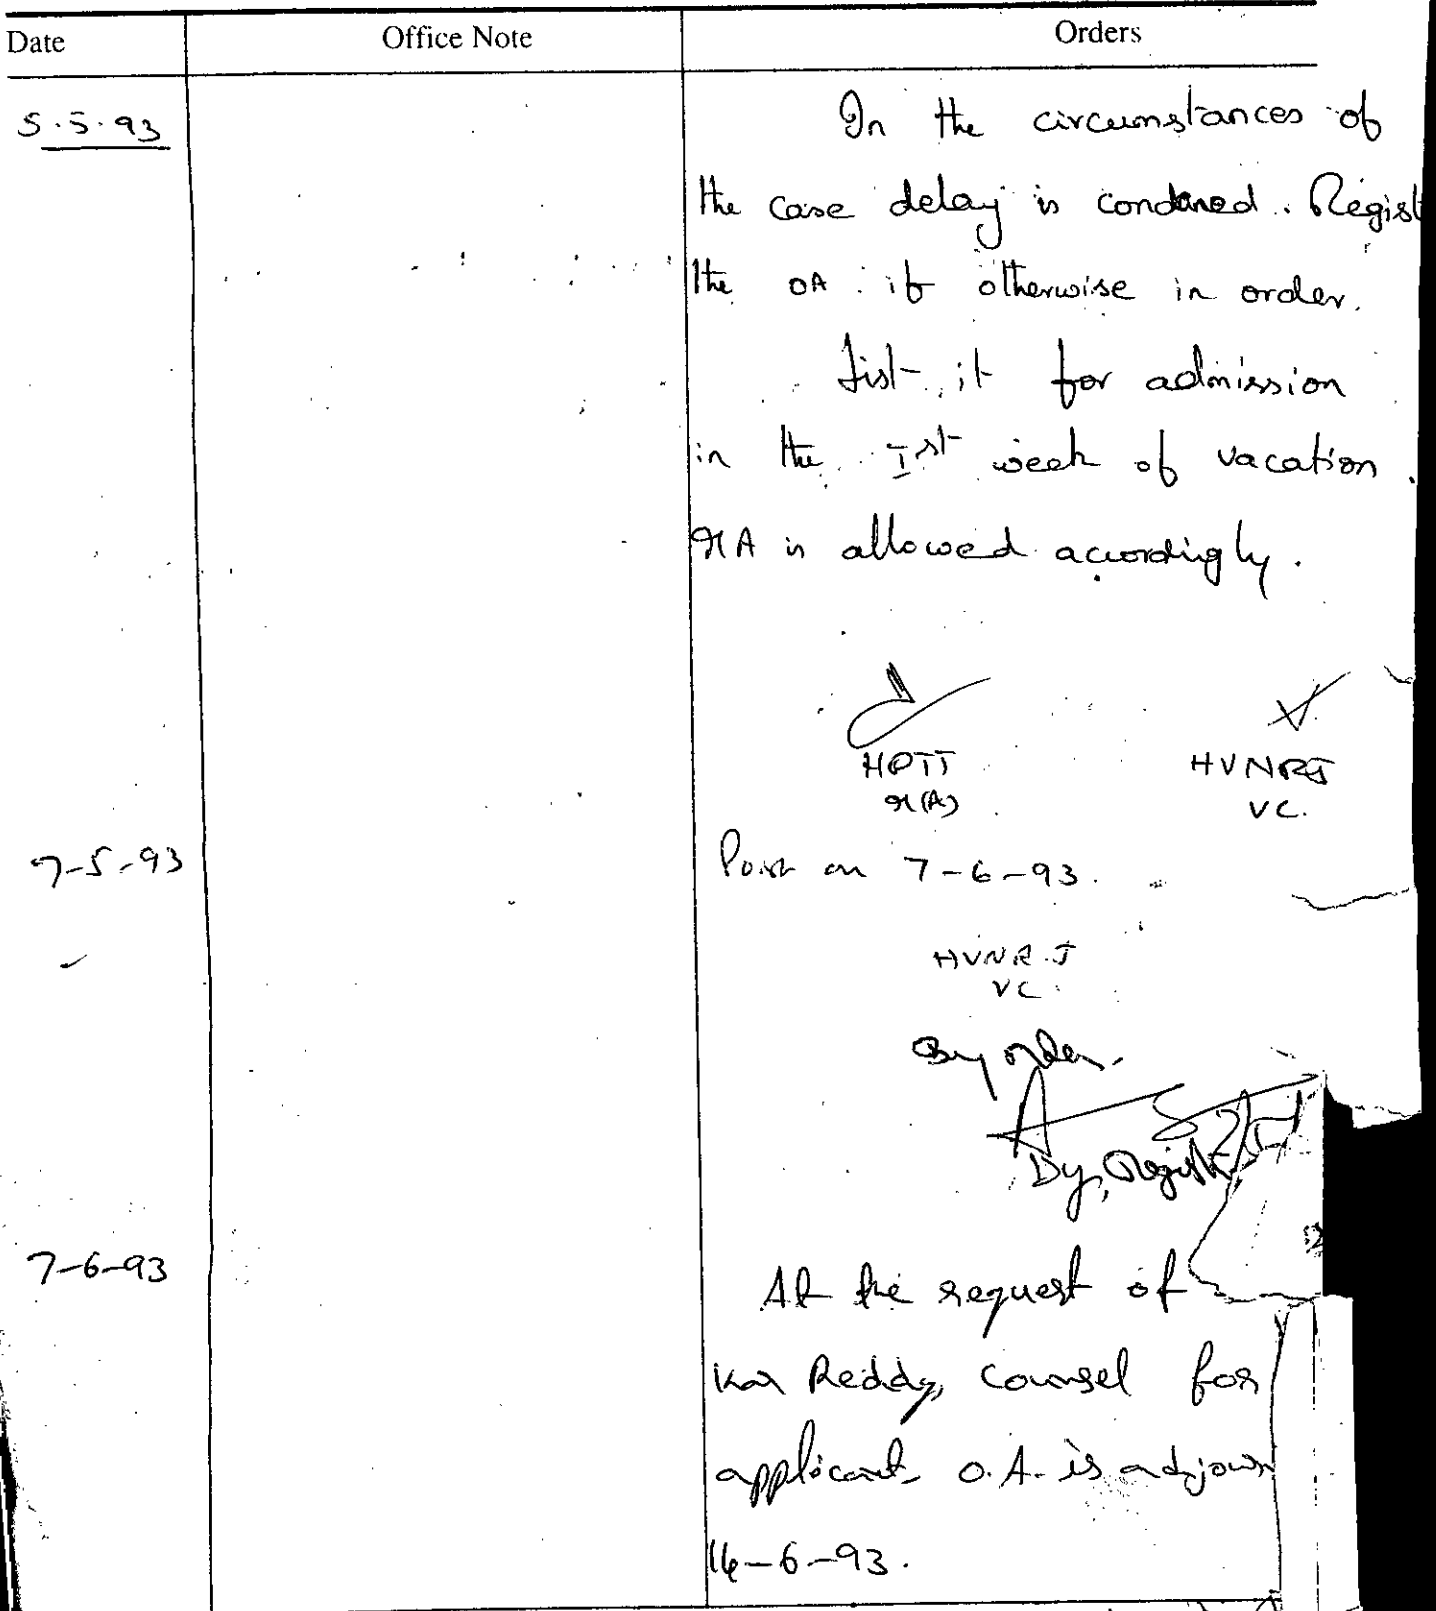 Date Office Note Orders
5.5.93 In the circumstances of
the case delay is condoned. Regist
the OA if otherwise in order.
List it for admission
in the Ist week of vacation.
MA is allowed accordingly.
HPTT HVNRJ
M(A) VC.
7-5-93 Post on 7-6-93.
HVNR.J
VC.
By order.
Dy. Regist
7-6-93 At the request of
kar Reddy, counsel for
applicant, O.A. is adjourn
14-6-93.